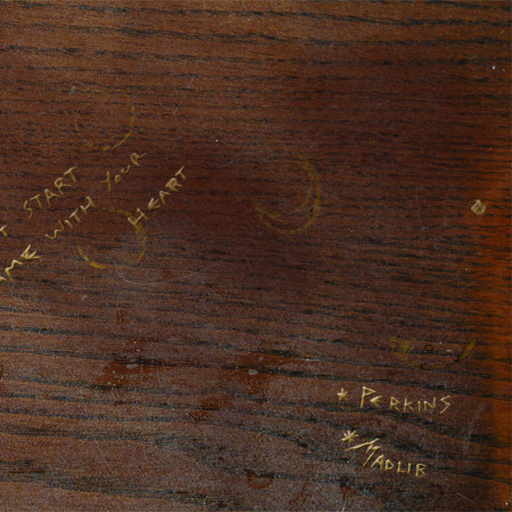 START
WITH YOUR
HEART
* PERKINS
* MADLIB